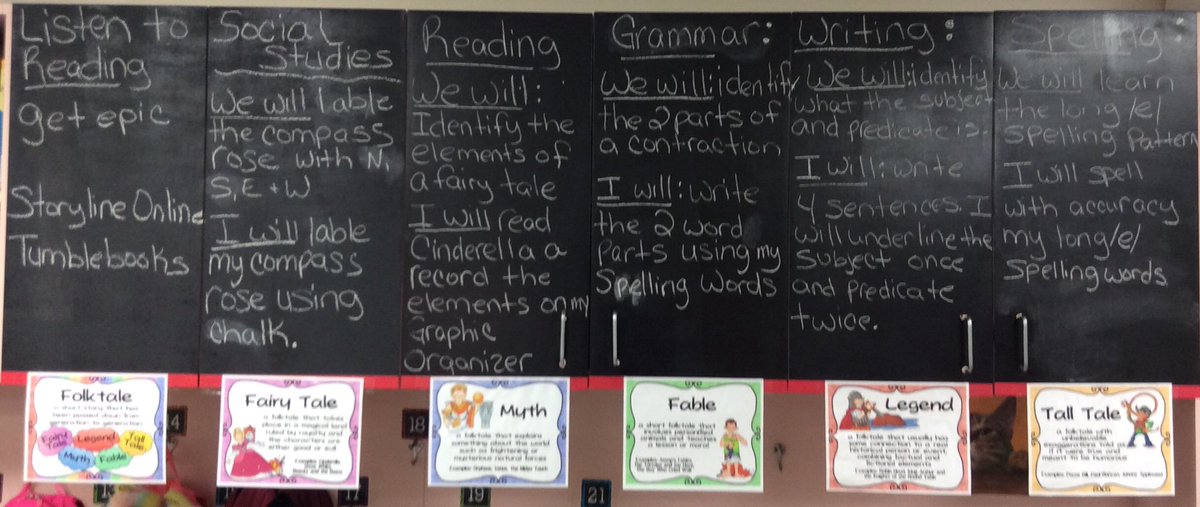 Listen to
Reading
get epic
Storyline Online
Tumblebooks
Social
Studies
We will lable
the compass
rose with N,
S, E + W
I will lable
my compass
rose using
chalk.
Reading
We will:
Identify the
elements of
a fairy tale
I will read
Cinderella a
record the
elements on my
graphic
Organizer
Grammar:
We will: identify
the 2 parts of
a contraction
I will: write
the 2 word
parts using my
Spelling Words
Writing:
We will: identify
what the subject
and predicate is.
I will: write
4 sentences. I
will underline the
subject once
and predicate
twice.
Spelling:
We will learn
the long /e/
spelling pattern
I will spell
with accuracy
my long /e/
spelling words
Folktale
a short story that has
been passed down from
generation to generation
Fairy
Tale
Legend
Tall
Tale
Myth
Fable
Fairy Tale
a folktale that takes
place in a magical land
ruled by royalty and
the characters are
either good or evil
Myth
a folktale that explains
something about the world
such as frightening or
mysterious natural forces
Fable
a short folktale that
involves personified
animals and teaches
a lesson or moral
Legend
a folktale that usually has
some connection to a real
historical person or event,
combining factual and
fictional elements
Tall Tale
a folktale with
unbelievable
exaggerations told as
if it were true and
meant to be humorous
14
18
16
17
19
21